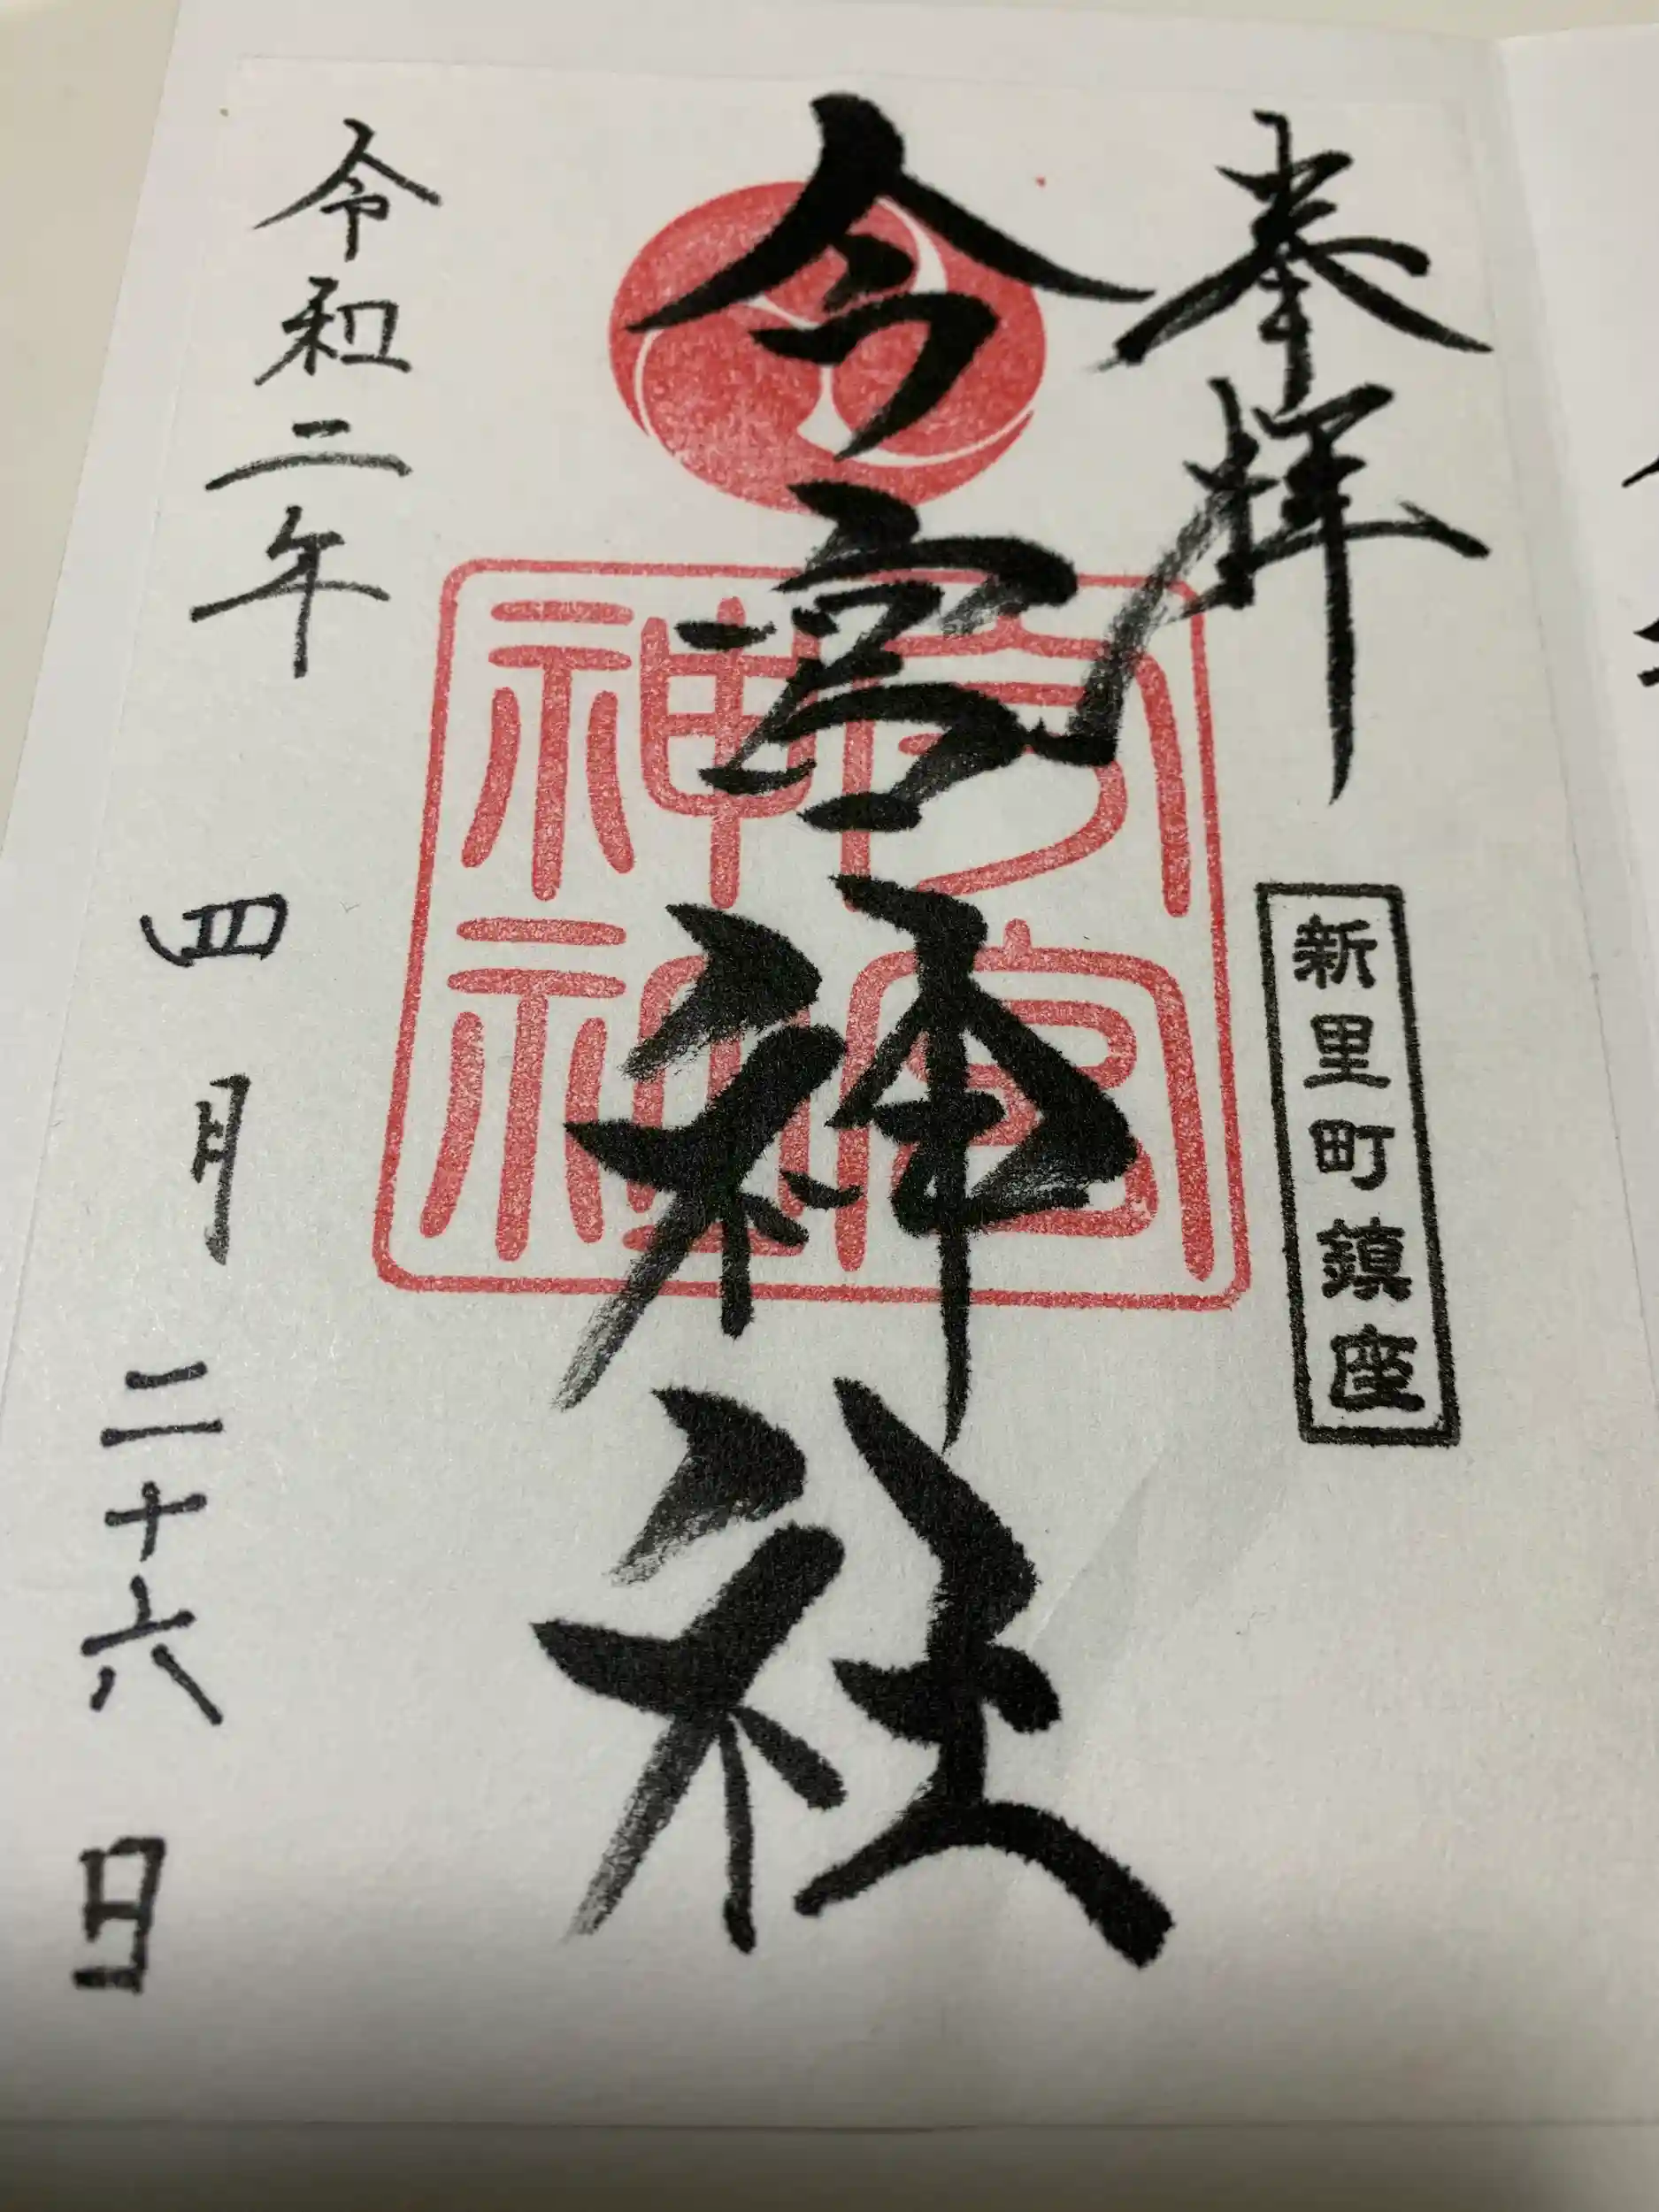 奉拝
新里町鎮座
今宮神社
今宮
神社
令和二年四月二十六日